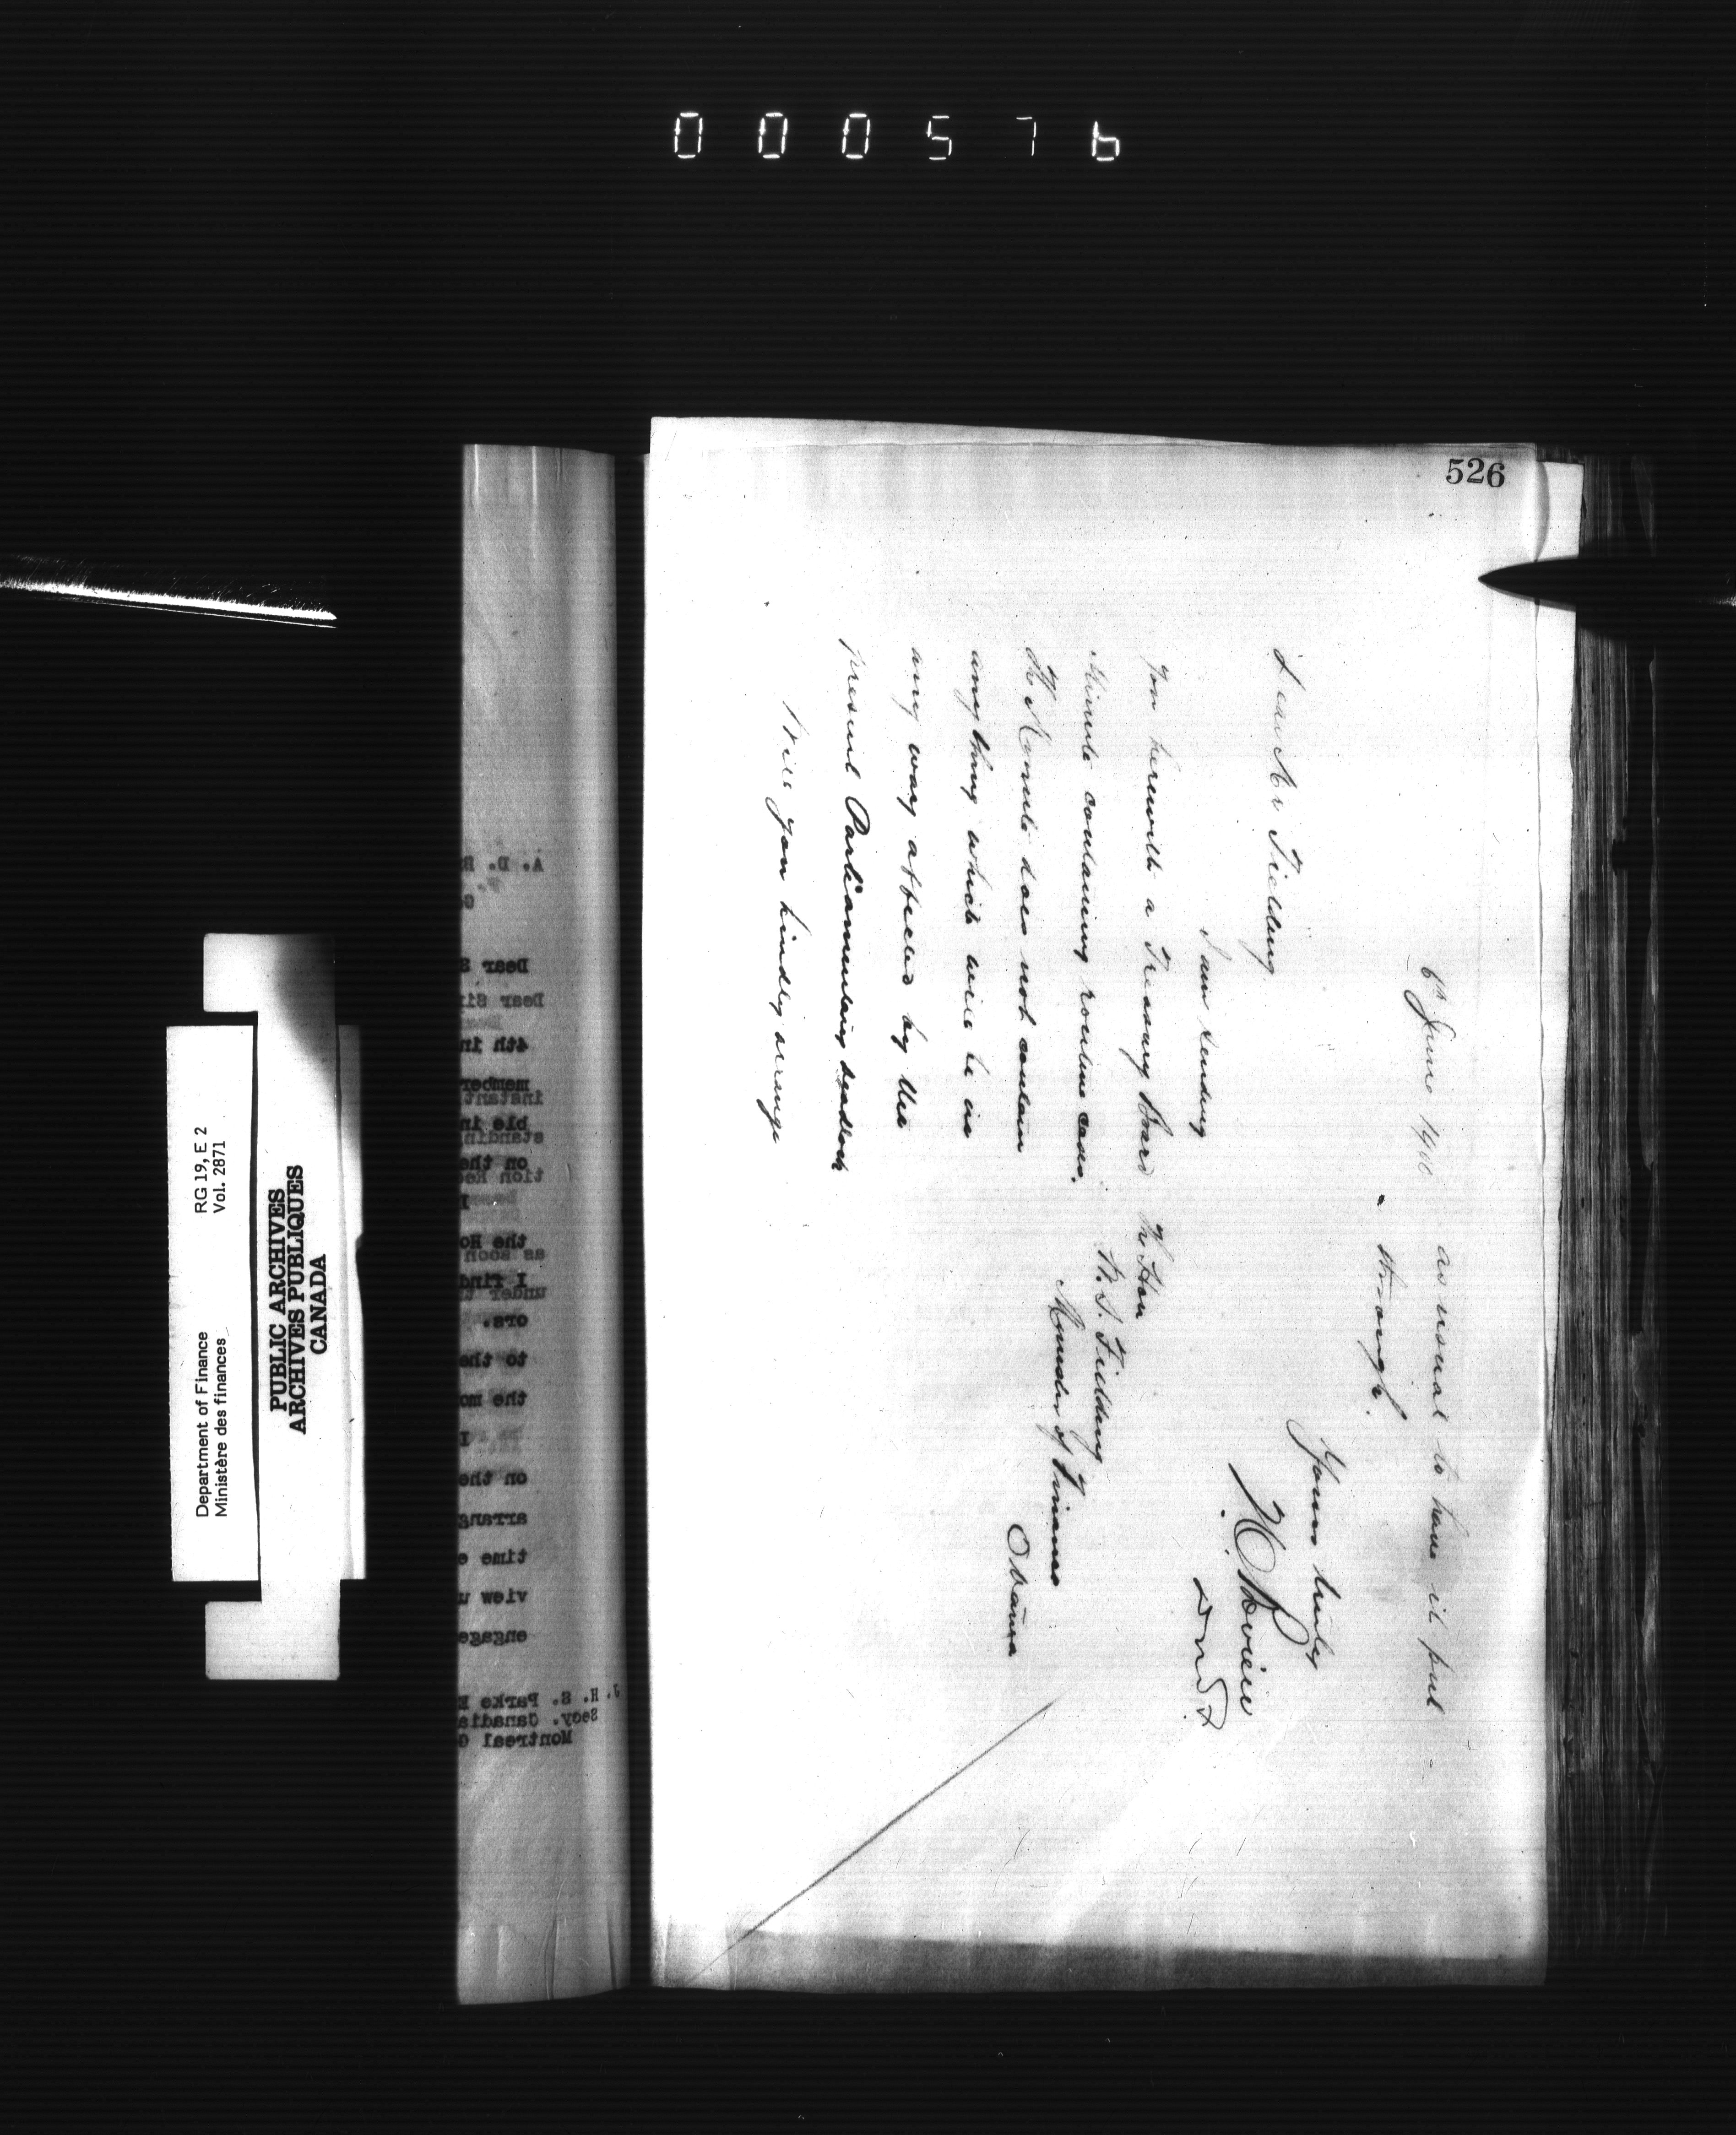 000576
526
6th June 1908
Dear Mr Fielding
I am sending
you herewith a Treasury Board
Minute containing routine cases.
The Minute does not contain
anything which will be in
any way affected by the
present Parliamentary deadlock
Will you kindly arrange
as usual to have it put -
through.
Yours truly
The Hon
W. S. Fielding
Minister of Finance
Ottawa
Department of Finance
Ministère des finances
RG 19, E 2
Vol. 2871
PUBLIC ARCHIVES
ARCHIVES PUBLIQUES
CANADA
A. D.
Dear
Dear Sir
4th in
member
instant
ble in
on the
tion
the Ho
as soon
I find
under
ors.
to the
the mo
I
on the
arrang
time
view
engage
J. H. S. Parke
Secy. Canadia
Montreal